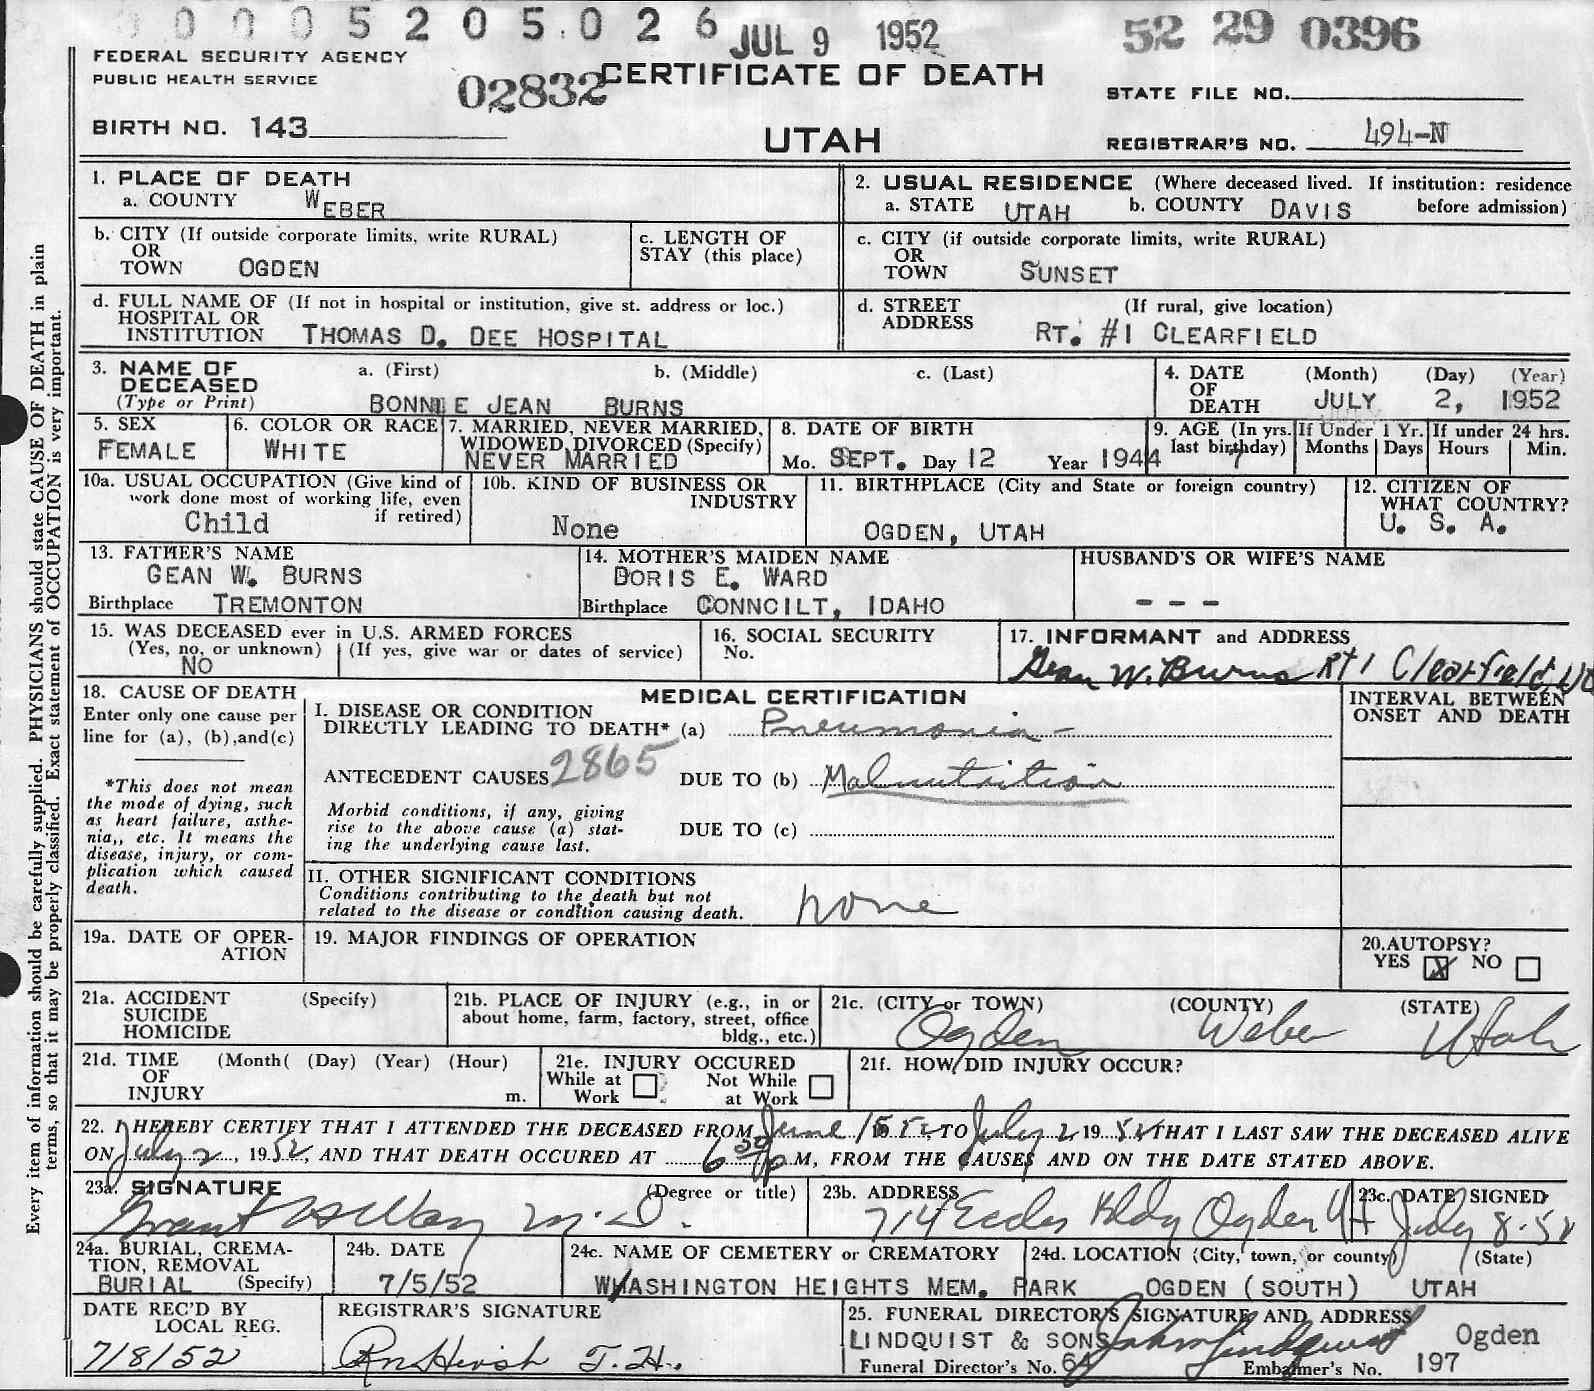 0 0 0 5 2 0 5 0 2 6 JUL 9 1952 52 29 0396
FEDERAL SECURITY AGENCY
PUBLIC HEALTH SERVICE
02832 CERTIFICATE OF DEATH
STATE FILE NO.
BIRTH NO. 143
UTAH
REGISTRAR'S NO. 494-N
Every item of information should be carefully supplied. PHYSICIANS should state CAUSE OF DEATH in plain
terms, so that it may be properly classified. Exact statement of OCCUPATION is very important.
1. PLACE OF DEATH
a. COUNTY WEBER
2. USUAL RESIDENCE (Where deceased lived. If institution: residence
a. STATE UTAH b. COUNTY DAVIS before admission)
b. CITY (If outside corporate limits, write RURAL)
OR
TOWN OGDEN
c. LENGTH OF
STAY (this place)
c. CITY (if outside corporate limits, write RURAL)
OR
TOWN SUNSET
d. FULL NAME OF (If not in hospital or institution, give st. address or loc.)
HOSPITAL OR
INSTITUTION THOMAS D. DEE HOSPITAL
d. STREET (If rural, give location)
ADDRESS RT. #1 CLEARFIELD
3. NAME OF a. (First) b. (Middle) c. (Last)
DECEASED
(Type or Print) BONNIE JEAN BURNS
4. DATE (Month) (Day) (Year)
OF
DEATH JULY 2, 1952
5. SEX
FEMALE
6. COLOR OR RACE
WHITE
7. MARRIED, NEVER MARRIED,
WIDOWED, DIVORCED (Specify)
NEVER MARRIED
8. DATE OF BIRTH
Mo. SEPT. Day 12 Year 1944
9. AGE (In yrs.
last birthday) 7
If Under 1 Yr.
Months Days
If under 24 hrs.
Hours Min.
10a. USUAL OCCUPATION (Give kind of
work done most of working life, even
if retired)
Child
10b. KIND OF BUSINESS OR
INDUSTRY
None
11. BIRTHPLACE (City and State or foreign country)
OGDEN, UTAH
12. CITIZEN OF
WHAT COUNTRY?
U. S. A.
13. FATHER'S NAME
GEAN W. BURNS
Birthplace TREMONTON
14. MOTHER'S MAIDEN NAME
DORIS E. WARD
Birthplace CONNCILT, IDAHO
HUSBAND'S OR WIFE'S NAME
- - -
15. WAS DECEASED ever in U.S. ARMED FORCES
(Yes, no, or unknown) (If yes, give war or dates of service)
NO
16. SOCIAL SECURITY
No.
17. INFORMANT and ADDRESS
Gean W. Burns Rt 1 Clearfield,
18. CAUSE OF DEATH
Enter only one cause per
line for (a), (b),and(c)
*This does not mean
the mode of dying, such
as heart failure, asthe-
nia,, etc. It means the
disease, injury, or com-
plication which caused
death.
MEDICAL CERTIFICATION
I. DISEASE OR CONDITION
DIRECTLY LEADING TO DEATH* (a) Pneumonia -
ANTECEDENT CAUSES 2865 DUE TO (b) Malnutrition
Morbid conditions, if any, giving
rise to the above cause (a) stat-
ing the underlying cause last.
DUE TO (c)
INTERVAL BETWEEN
ONSET AND DEATH
II. OTHER SIGNIFICANT CONDITIONS
Conditions contributing to the death but not
related to the disease or condition causing death.
none
19a. DATE OF OPER-
ATION
19. MAJOR FINDINGS OF OPERATION
20. AUTOPSY?
YES X NO
21a. ACCIDENT (Specify)
SUICIDE
HOMICIDE
21b. PLACE OF INJURY (e.g., in or
about home, farm, factory, street, office
bldg., etc.)
21c. (CITY or TOWN) (COUNTY) (STATE)
Ogden Weber Utah
21d. TIME (Month( (Day) (Year) (Hour)
OF
INJURY m.
21e. INJURY OCCURED
While at Work Not While at Work
21f. HOW DID INJURY OCCUR?
22. I HEREBY CERTIFY THAT I ATTENDED THE DECEASED FROM June 19 52, TO July 2 19 52 THAT I LAST SAW THE DECEASED ALIVE
ON July 2, 1952, AND THAT DEATH OCCURED AT 6 30 P M, FROM THE CAUSES AND ON THE DATE STATED ABOVE.
23a. SIGNATURE (Degree or title)
Grant M.D.
23b. ADDRESS
714 Eccles Bldg Ogden Ut
23c. DATE SIGNED
July 8-52
24a. BURIAL, CREMA-
TION, REMOVAL
BURIAL (Specify)
24b. DATE
7/5/52
24c. NAME OF CEMETERY or CREMATORY
WHASHINGTON HEIGHTS MEM. PARK
24d. LOCATION (City, town, or county) (State)
OGDEN (SOUTH) UTAH
DATE REC'D BY
LOCAL REG.
7/8/52
REGISTRAR'S SIGNATURE
25. FUNERAL DIRECTOR'S SIGNATURE AND ADDRESS
LINDQUIST & SONS John Lindquist Ogden
Funeral Director's No. 64 Embalmer's No. 197